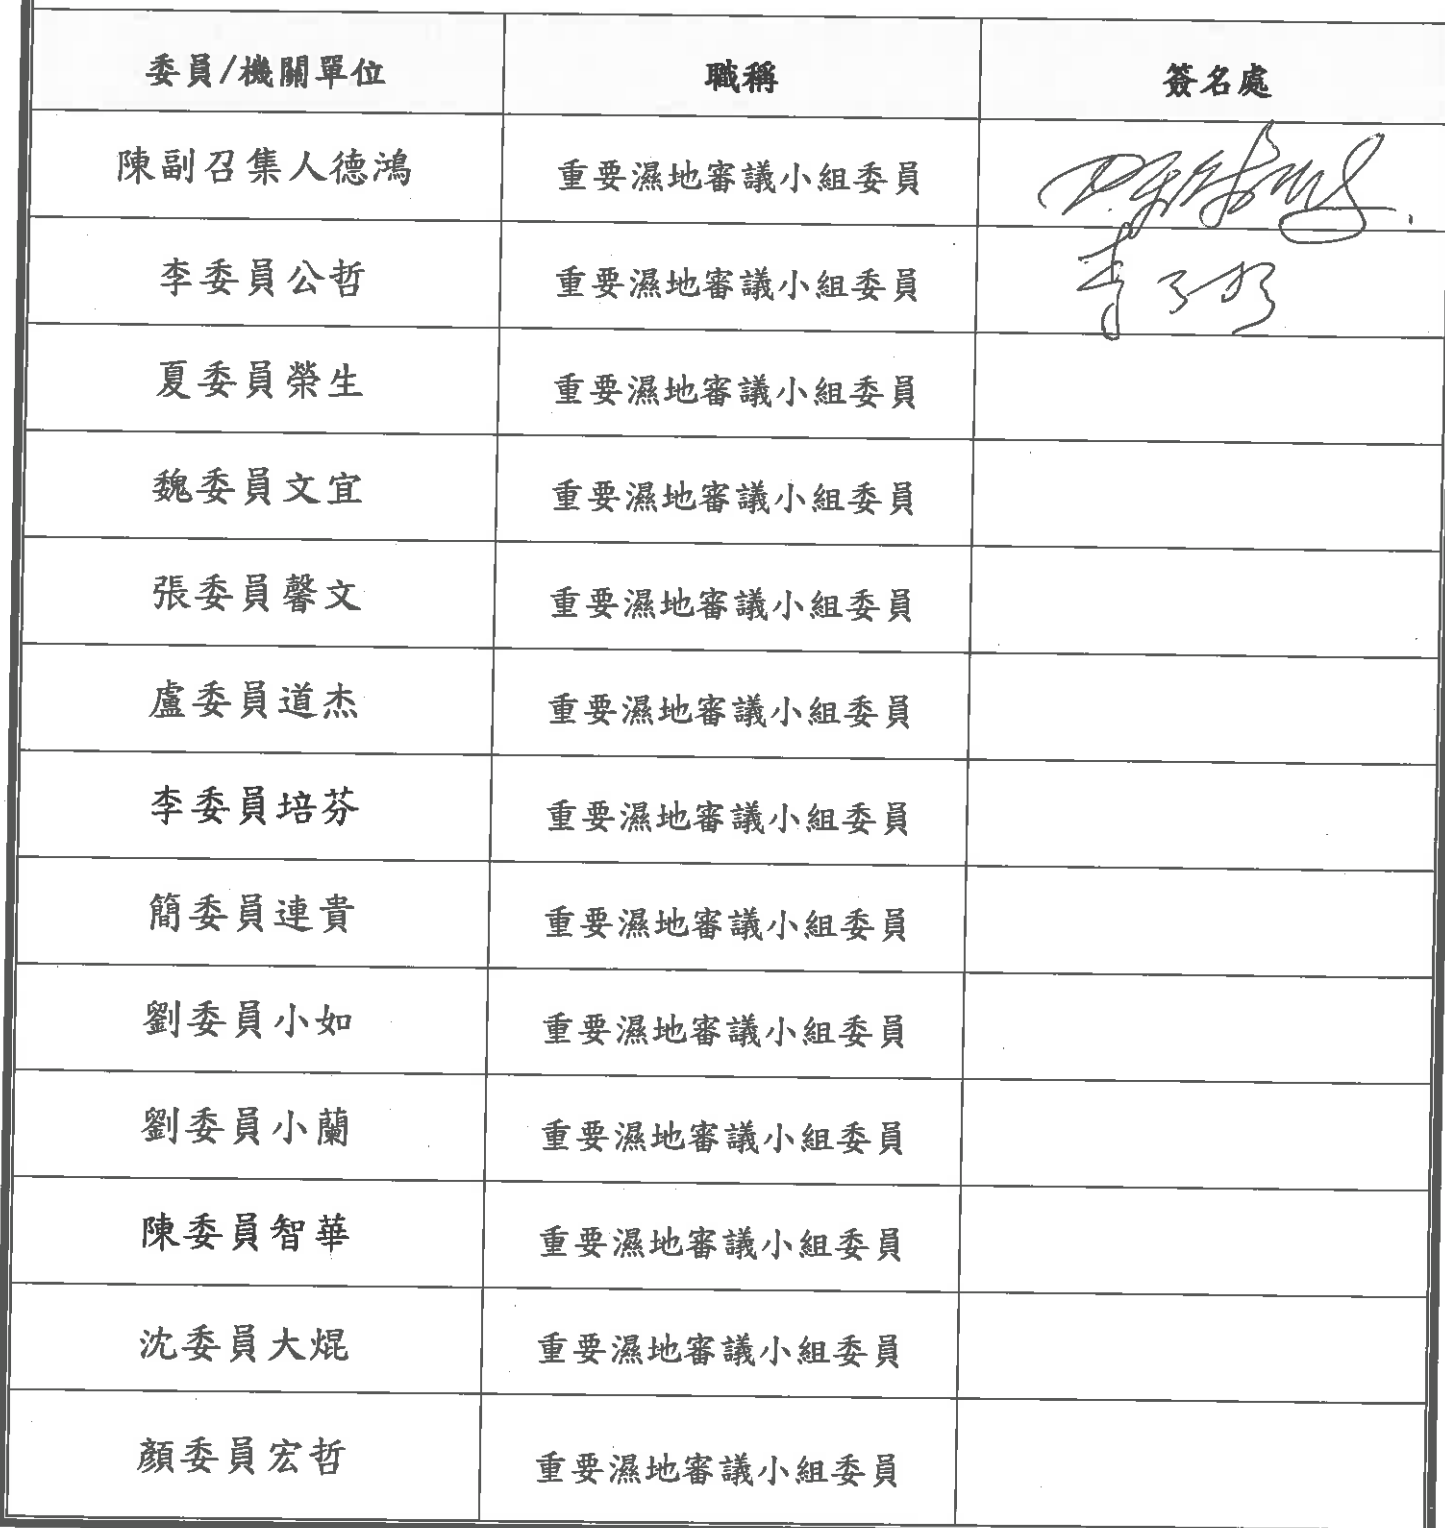 委員/機關單位 職稱 簽名處
陳副召集人德鴻 重要濕地審議小組委員
李委員公哲 重要濕地審議小組委員 李公哲
夏委員榮生 重要濕地審議小組委員
魏委員文宜 重要濕地審議小組委員
張委員馨文 重要濕地審議小組委員
盧委員道杰 重要濕地審議小組委員
李委員培芬 重要濕地審議小組委員
簡委員連貴 重要濕地審議小組委員
劉委員小如 重要濕地審議小組委員
劉委員小蘭 重要濕地審議小組委員
陳委員智華 重要濕地審議小組委員
沈委員大焜 重要濕地審議小組委員
顏委員宏哲 重要濕地審議小組委員